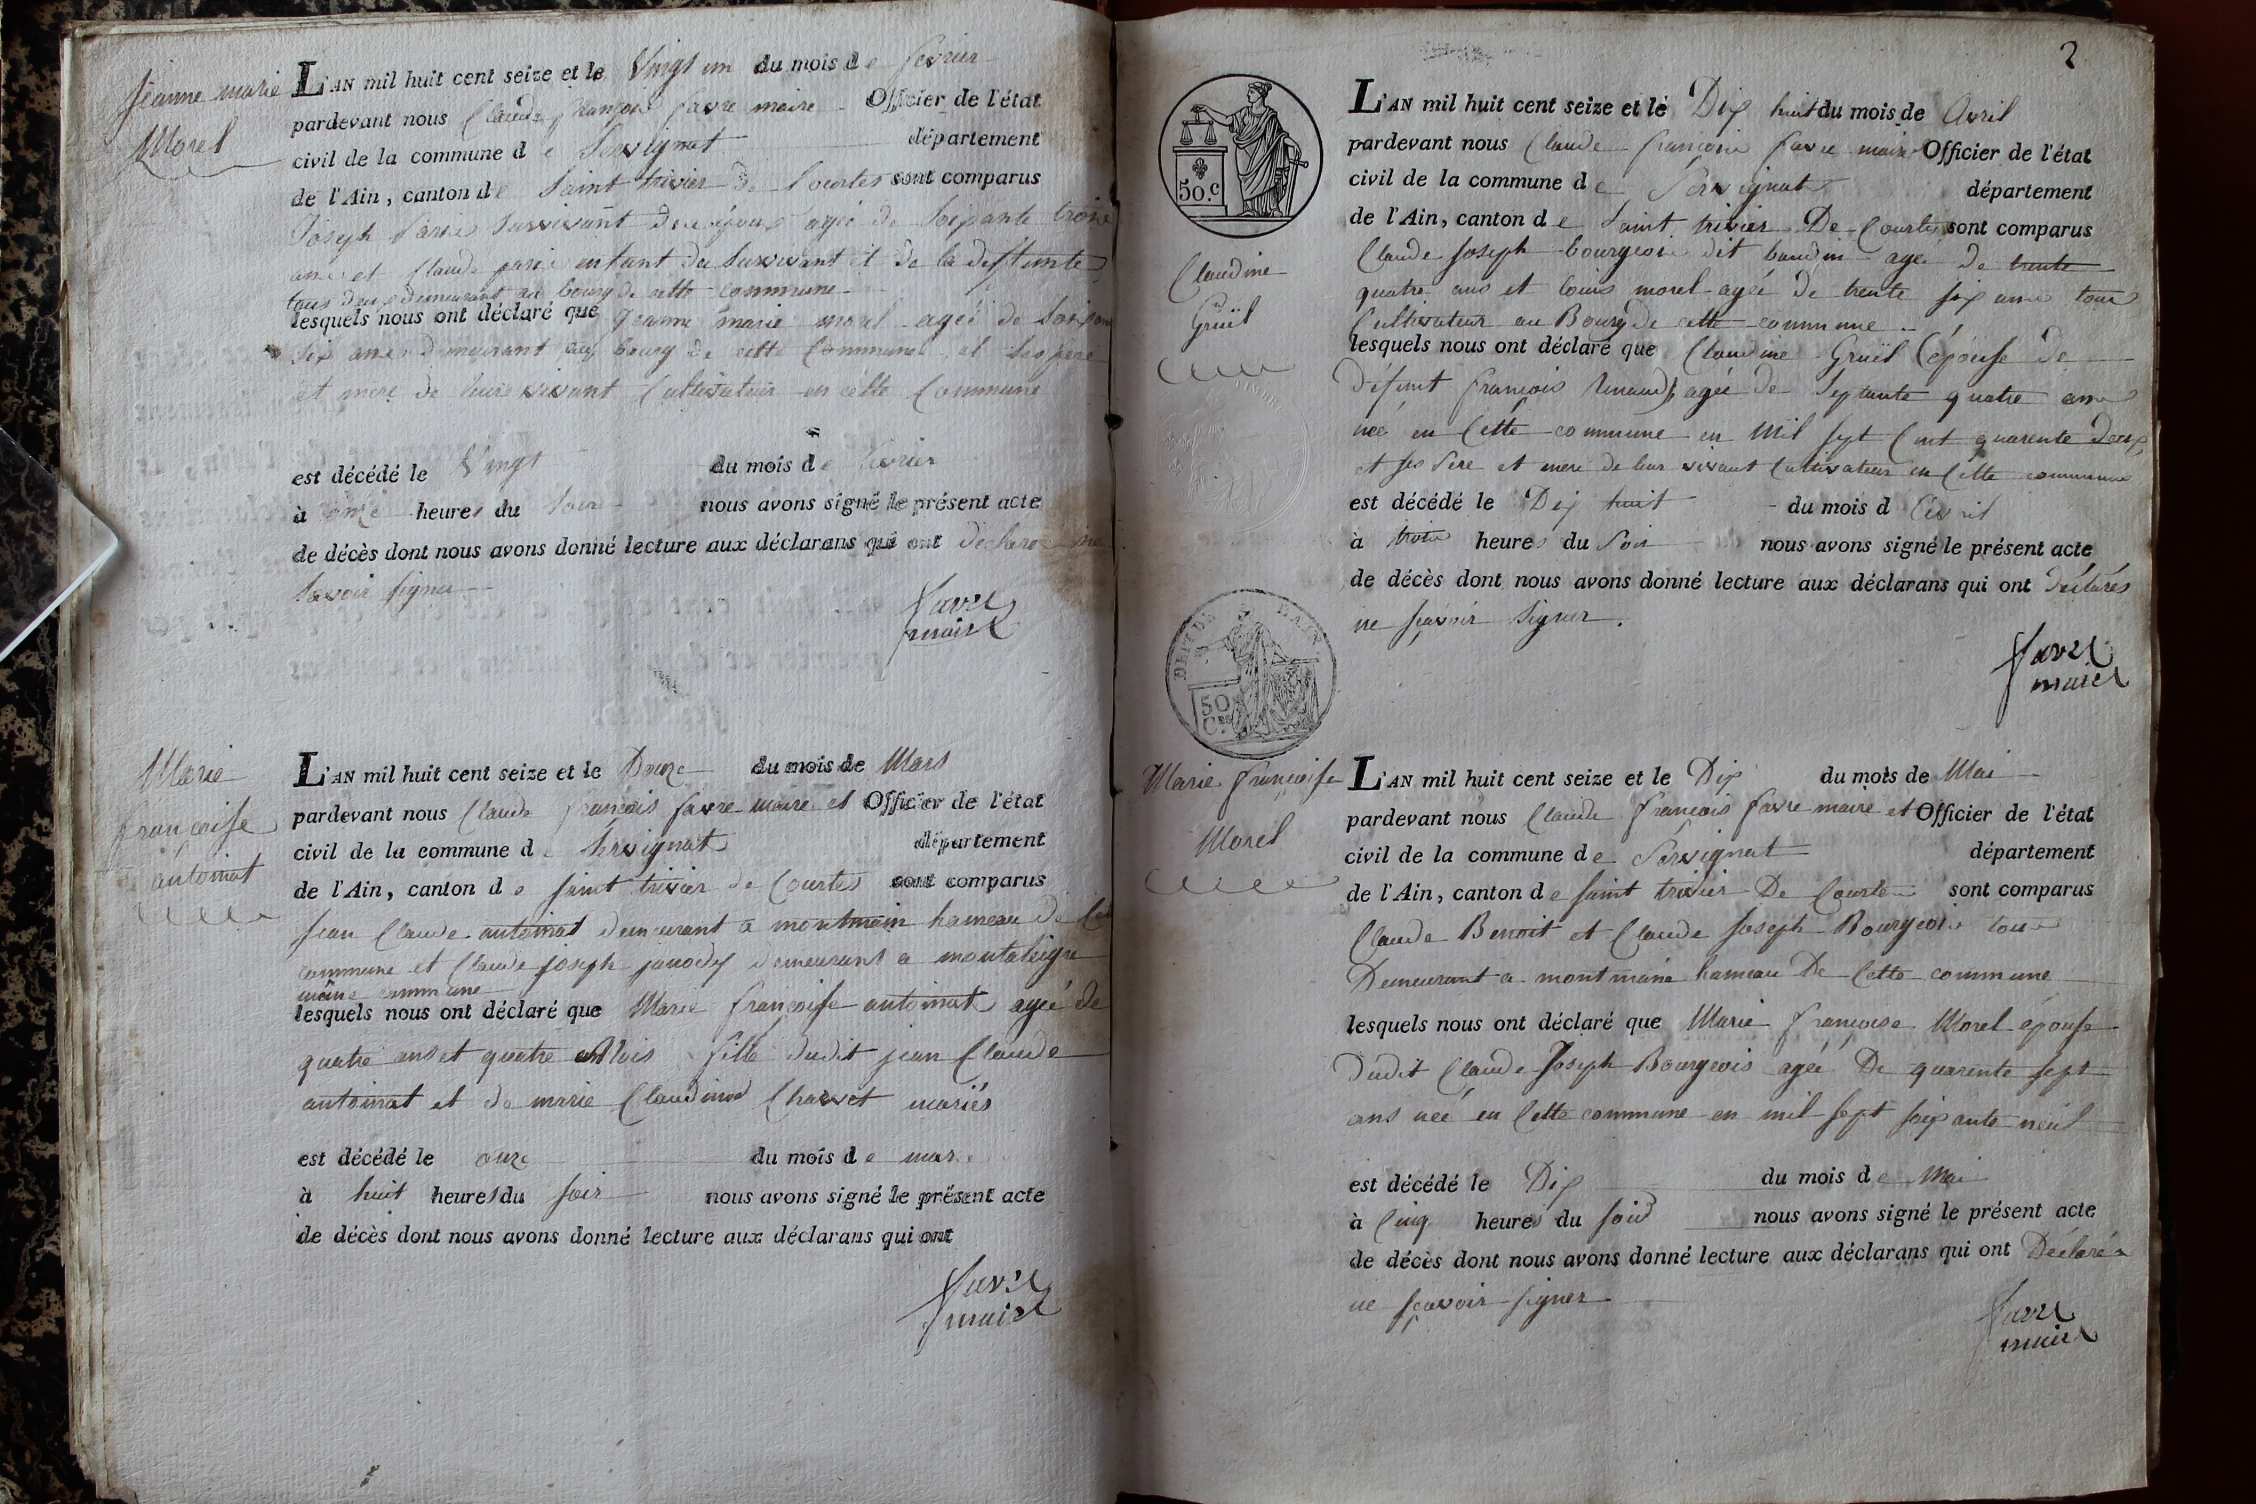 Jeanne marie
Morel
L'AN mil huit cent seize et le Vingt un du mois de fevrier
pardevant nous Claude françois favre maire Officier de l'état
civil de la commune de Servignat département
de l'Ain, canton de Saint trivier de Courtes sont comparus
Joseph paris survivant agée de Soixante trois
ans et Claude paris enfant du Survivant et de la deffunte
tous deux demeurant au bourg de cette commune
lesquels nous ont déclaré que Jeanne marie morel agée de
Six ans demeurant au bourg de cette Commune et Ses pere
et mere de leurs vivant Cultivateur en cette Commune
est décédé le Vingt du mois de fevrier
à onze heures du Soir nous avons signé le présent acte
de décès dont nous avons donné lecture aux déclarans qui ont déclaré ne
Savoir signer
favre
maire
Marie
françoise
antoinat
L'AN mil huit cent seize et le Douze du mois de Mars
pardevant nous Claude françois favre maire et Officier de l'état
civil de la commune de Servignat département
de l'Ain, canton de saint trivier de Courtes sont comparus
jean Claude antoinat demeurant a montmain hameau de
commune et Claude joseph demeurant a
même commune
lesquels nous ont déclaré que Marie françoise antoinat agée de
quatre ans et quatre Mois fille dudit jean Claude
antoinat et de marie Claudine Charvet mariés
est décédé le onze du mois de mars
à huit heures du soir nous avons signé le présent acte
de décès dont nous avons donné lecture aux déclarans qui ont
favre
maire
2
50.c
L'AN mil huit cent seize et le Dix huit du mois de Avril
pardevant nous Claude françois favre maire Officier de l'état
civil de la commune de Servignat département
de l'Ain, canton de Saint trivier De Courtes sont comparus
Claudine
Gruël
Claude Joseph bourgeois dit baudin age de trente
quatre ans et louis morel agée de trente six ans tous
Cultivateur au Bourg de cette commune
lesquels nous ont déclaré que Claudine Gruël (épouse de
Défunt françois Renaud) agée de Septante quatre ans
née en Cette commune en Mil sept Cent quarente deux
et ses Pere et mere de leur vivant Cultivateur en Cette commune
est décédé le Dix huit du mois d Avril
à trois heures du Soir nous avons signé le présent acte
de décès dont nous avons donné lecture aux déclarans qui ont Déclarés
ne sçavoir Signer.
favre
maire
50
Ces
Marie françoise
Morel
L'AN mil huit cent seize et le Dix du mois de Mai
pardevant nous Claude françois favre maire et Officier de l'état
civil de la commune de Servignat département
de l'Ain, canton de saint trivier De Courtes sont comparus
Claude Benoit et Claude Joseph Bourgeois tous
Demeurant a montmain hameau De Cette commune
lesquels nous ont déclaré que Marie françoise Morel épouse
Dudit Claude Joseph Bourgeois agée De quarente sept
ans née en Cette commune en mil sept soixante neuf
est décédé le Dix du mois de Mai
à Cinq heures du soir nous avons signé le présent acte
de décès dont nous avons donné lecture aux déclarans qui ont Déclarés
ne sçavoir signer
favre
maire